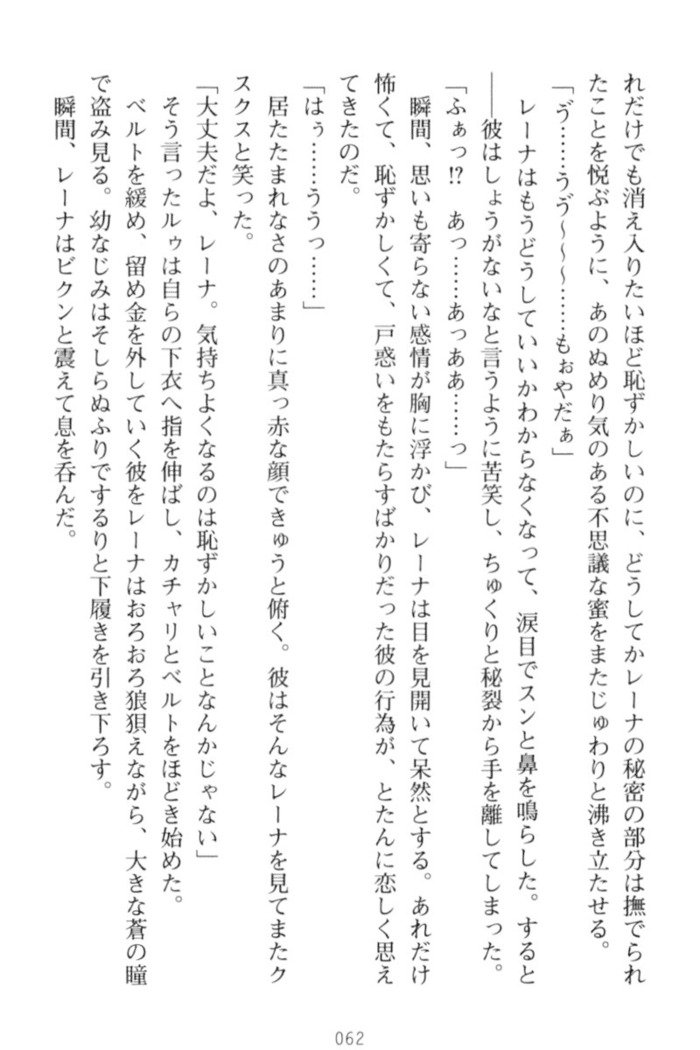 れだけでも消え入りたいほど恥ずかしいのに、どうしてかレーナの秘密の部分は撫でられ
たことを悦ぶように、あのぬめり気のある不思議な蜜をまたじゅわりと沸き立たせる。
「ゔ……うゔ～～～……もぉやだぁ」
レーナはもうどうしていいかわからなくなって、涙目でスンと鼻を鳴らした。すると
――彼はしょうがないなと言うように苦笑し、ちゅくりと秘裂から手を離してしまった。
「ふぁっ!? あっ……あっああ……っ」
瞬間、思いも寄らない感情が胸に浮かび、レーナは目を見開いて呆然とする。あれだけ
怖くて、恥ずかしくて、戸惑いをもたらすばかりだった彼の行為が、とたんに恋しく思え
てきたのだ。
「はぅ……ううっ……」
居たたまれなさのあまりに真っ赤な顔できゅうと俯く。彼はそんなレーナを見てまたク
スクスと笑った。
「大丈夫だよ、レーナ。気持ちよくなるのは恥ずかしいことなんかじゃない」
そう言ったルゥは自らの下衣へ指を伸ばし、カチャリとベルトをほどき始めた。
ベルトを緩め、留め金を外していく彼をレーナはおろおろ狼狽えながら、大きな蒼の瞳
で盗み見る。幼なじみはそしらぬふりでするりと下履きを引き下ろす。
瞬間、レーナはビクンと震えて息を呑んだ。
062